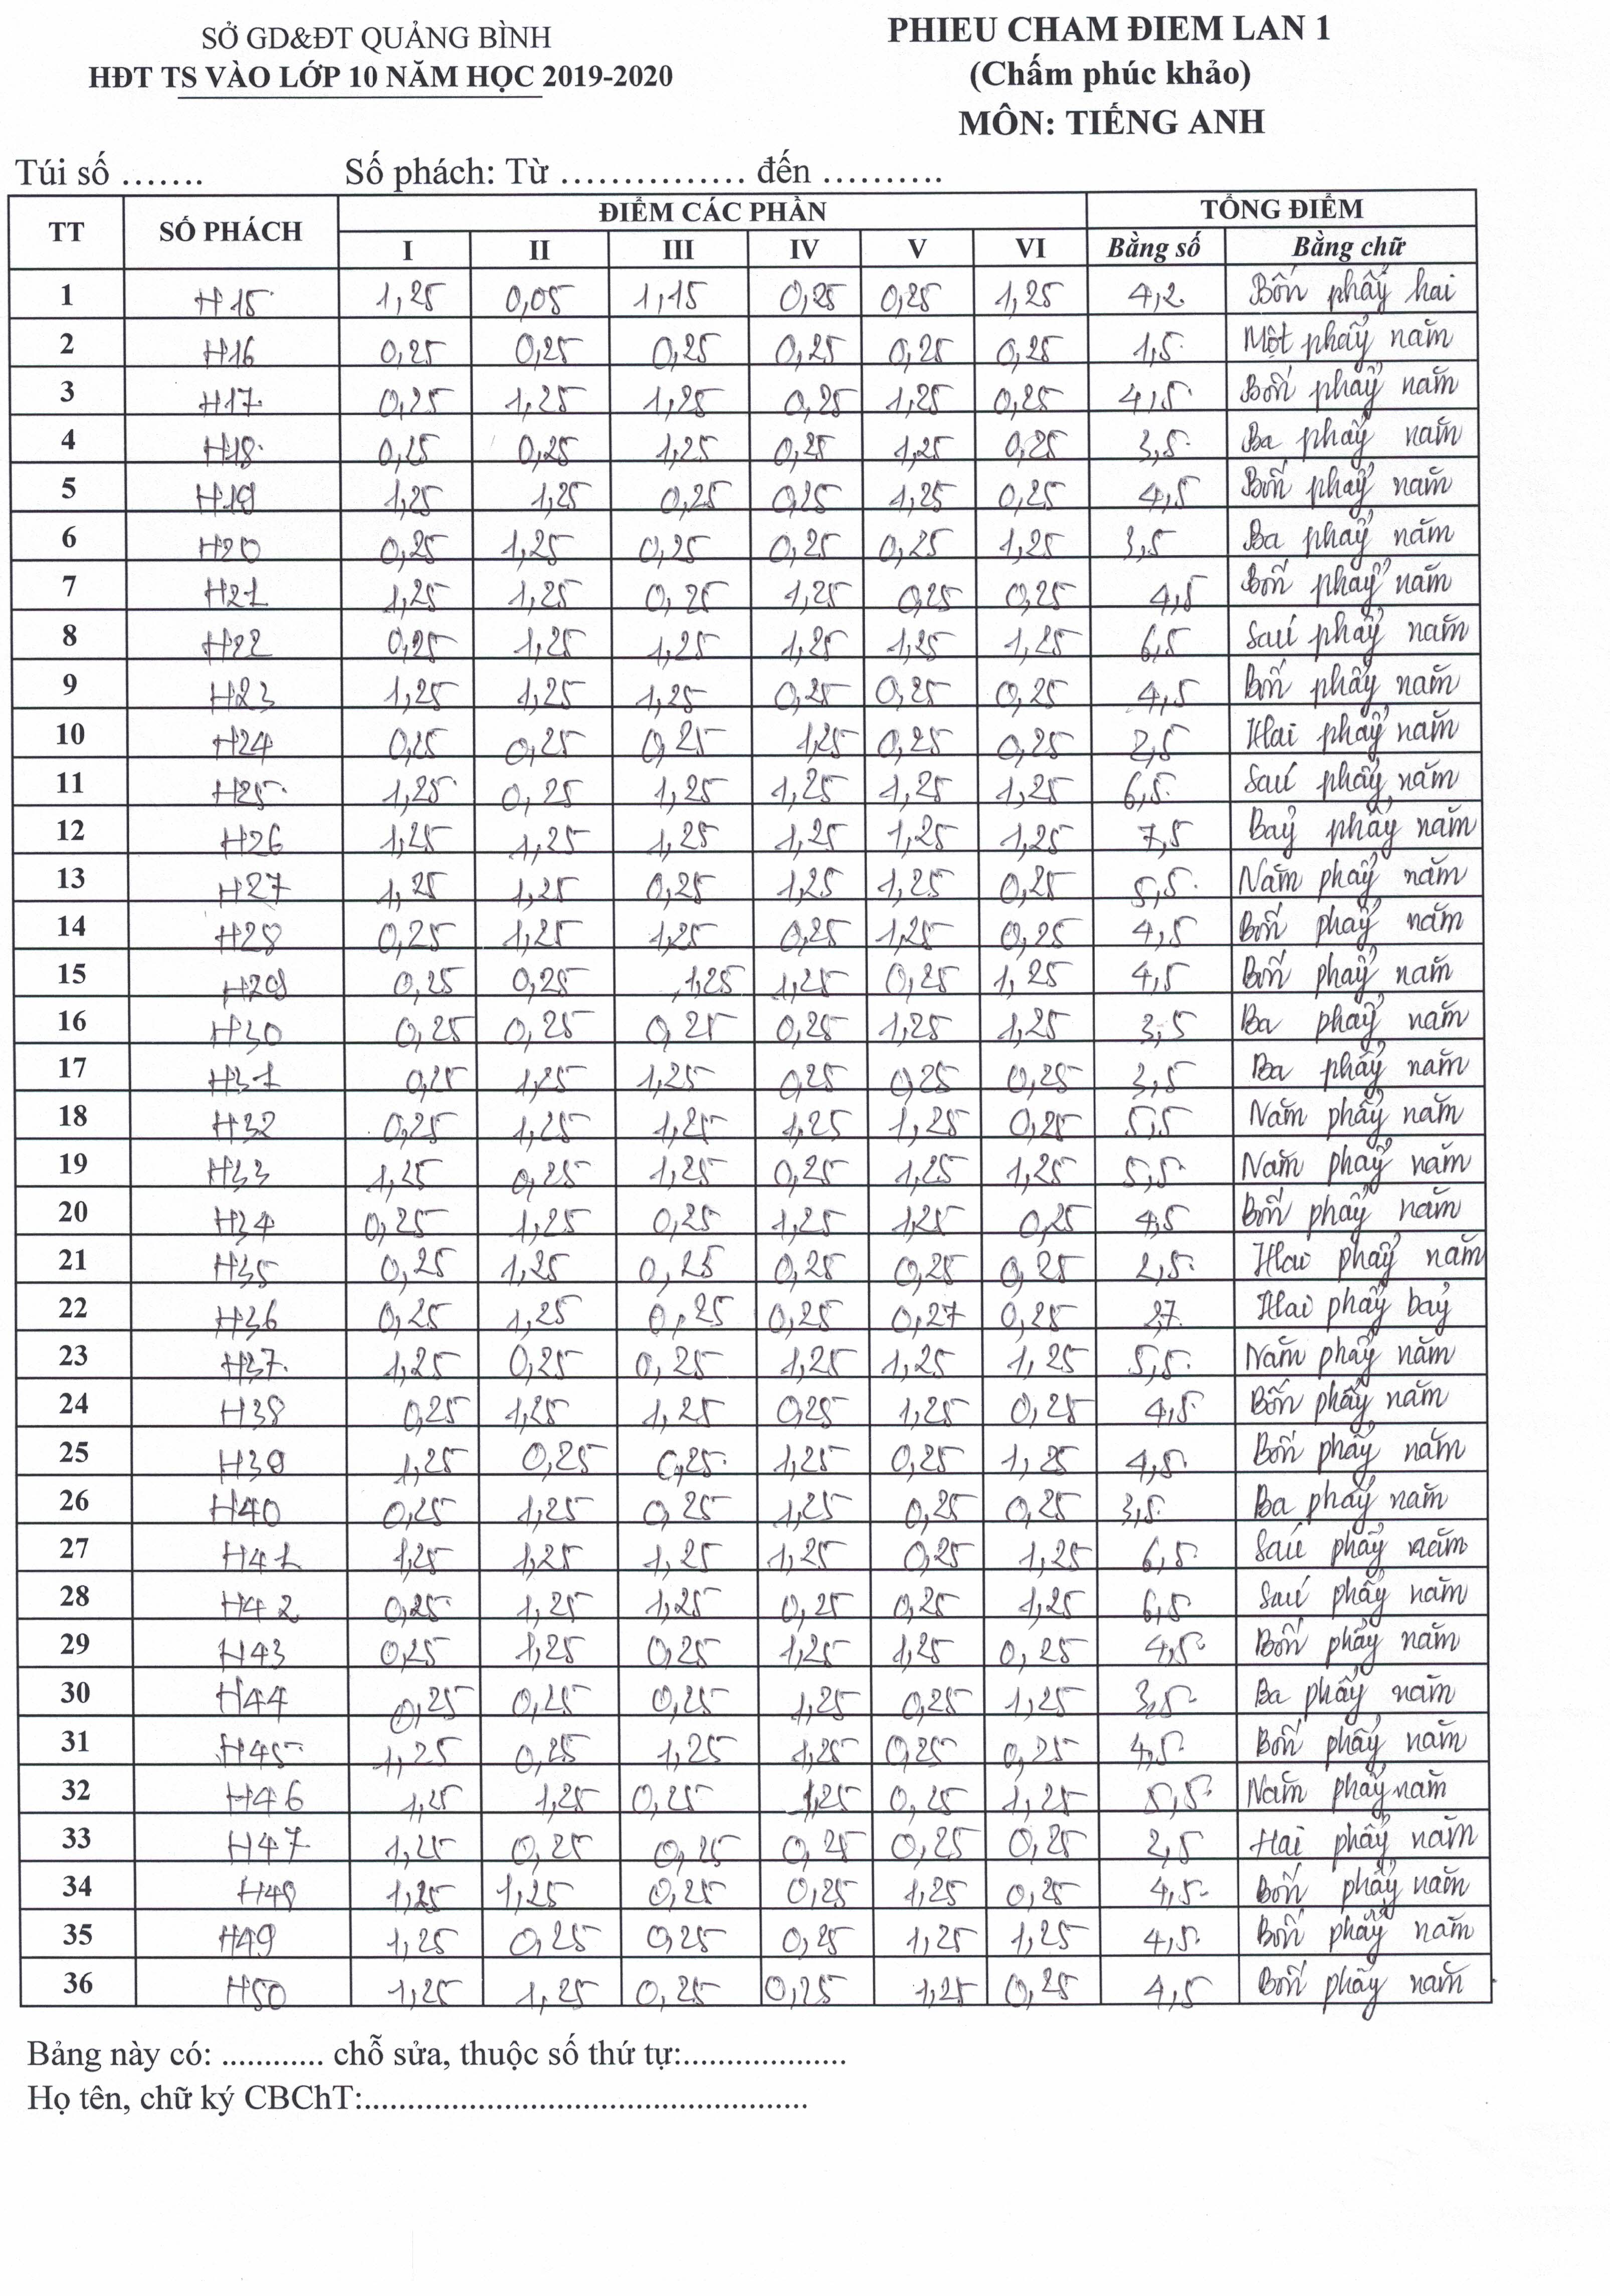 SỞ GD&ĐT QUẢNG BÌNH
HĐT TS VÀO LỚP 10 NĂM HỌC 2019-2020
PHIEU CHAM ĐIEM LAN 1
(Chấm phúc khảo)
MÔN: TIẾNG ANH
Túi số ……. Số phách: Từ …………… đến ……….
TT SỐ PHÁCH ĐIỂM CÁC PHẦN TỔNG ĐIỂM
I II III IV V VI Bằng số Bằng chữ
1 H15 1,25 0,05 1,15 0,25 0,25 1,25 4,2 Bốn phẩy hai
2 H16 0,25 0,25 0,25 0,25 0,25 0,25 1,5 Một phẩy năm
3 H17 0,25 1,25 1,25 0,25 1,25 0,25 4,5 Bốn phẩy năm
4 H18 0,25 0,25 1,25 0,25 1,25 0,25 3,5 Ba phẩy năm
5 H19 1,25 1,25 0,25 0,25 1,25 0,25 4,5 Bốn phẩy năm
6 H20 0,25 1,25 0,25 0,25 0,25 1,25 3,5 Ba phẩy năm
7 H21 1,25 1,25 0,25 1,25 0,25 0,25 4,5 Bốn phẩy năm
8 H22 0,25 1,25 1,25 1,25 1,25 1,25 6,5 Sáu phẩy năm
9 H23 1,25 1,25 1,25 0,25 0,25 0,25 4,5 Bốn phẩy năm
10 H24 0,25 0,25 0,25 1,25 0,25 0,25 2,5 Hai phẩy năm
11 H25 1,25 0,25 1,25 1,25 1,25 1,25 6,5 Sáu phẩy năm
12 H26 1,25 1,25 1,25 1,25 1,25 1,25 7,5 Bảy phẩy năm
13 H27 1,25 1,25 0,25 1,25 1,25 0,25 5,5 Năm phẩy năm
14 H28 0,25 1,25 1,25 0,25 1,25 0,25 4,5 Bốn phẩy năm
15 H29 0,25 0,25 1,25 1,25 0,25 1,25 4,5 Bốn phẩy năm
16 H30 0,25 0,25 0,25 0,25 1,25 1,25 3,5 Ba phẩy năm
17 H31 0,25 1,25 1,25 0,25 0,25 0,25 3,5 Ba phẩy năm
18 H32 0,25 1,25 1,25 1,25 1,25 0,25 5,5 Năm phẩy năm
19 H33 1,25 0,25 1,25 0,25 1,25 1,25 5,5 Năm phẩy năm
20 H34 0,25 1,25 0,25 1,25 1,25 0,25 4,5 Bốn phẩy năm
21 H35 0,25 1,25 0,25 0,25 0,25 0,25 2,5 Hai phẩy năm
22 H36 0,25 1,25 0,25 0,25 0,27 0,25 2,7 Hai phẩy bảy
23 H37 1,25 0,25 0,25 1,25 1,25 1,25 5,5 Năm phẩy năm
24 H38 0,25 1,25 1,25 0,25 1,25 0,25 4,5 Bốn phẩy năm
25 H39 1,25 0,25 0,25 1,25 0,25 1,25 4,5 Bốn phẩy năm
26 H40 0,25 1,25 0,25 1,25 0,25 0,25 3,5 Ba phẩy năm
27 H41 1,25 1,25 1,25 1,25 0,25 1,25 6,5 Sáu phẩy năm
28 H42 0,25 1,25 1,25 0,25 0,25 1,25 6,5 Sáu phẩy năm
29 H43 0,25 1,25 0,25 1,25 1,25 0,25 4,5 Bốn phẩy năm
30 H44 0,25 0,25 0,25 1,25 0,25 1,25 3,5 Ba phẩy năm
31 H45 1,25 0,25 1,25 1,25 0,25 0,25 4,5 Bốn phẩy năm
32 H46 1,25 1,25 0,25 1,25 0,25 1,25 5,5 Năm phẩy năm
33 H47 1,25 0,25 0,25 0,25 0,25 0,25 2,5 Hai phẩy năm
34 H48 1,25 1,25 0,25 0,25 1,25 0,25 4,5 Bốn phẩy năm
35 H49 1,25 0,25 0,25 0,25 1,25 1,25 4,5 Bốn phẩy năm
36 H50 1,25 1,25 0,25 0,25 1,25 0,25 4,5 Bốn phẩy năm
Bảng này có: ............ chỗ sửa, thuộc số thứ tự:...................
Họ tên, chữ ký CBChT:...................................................